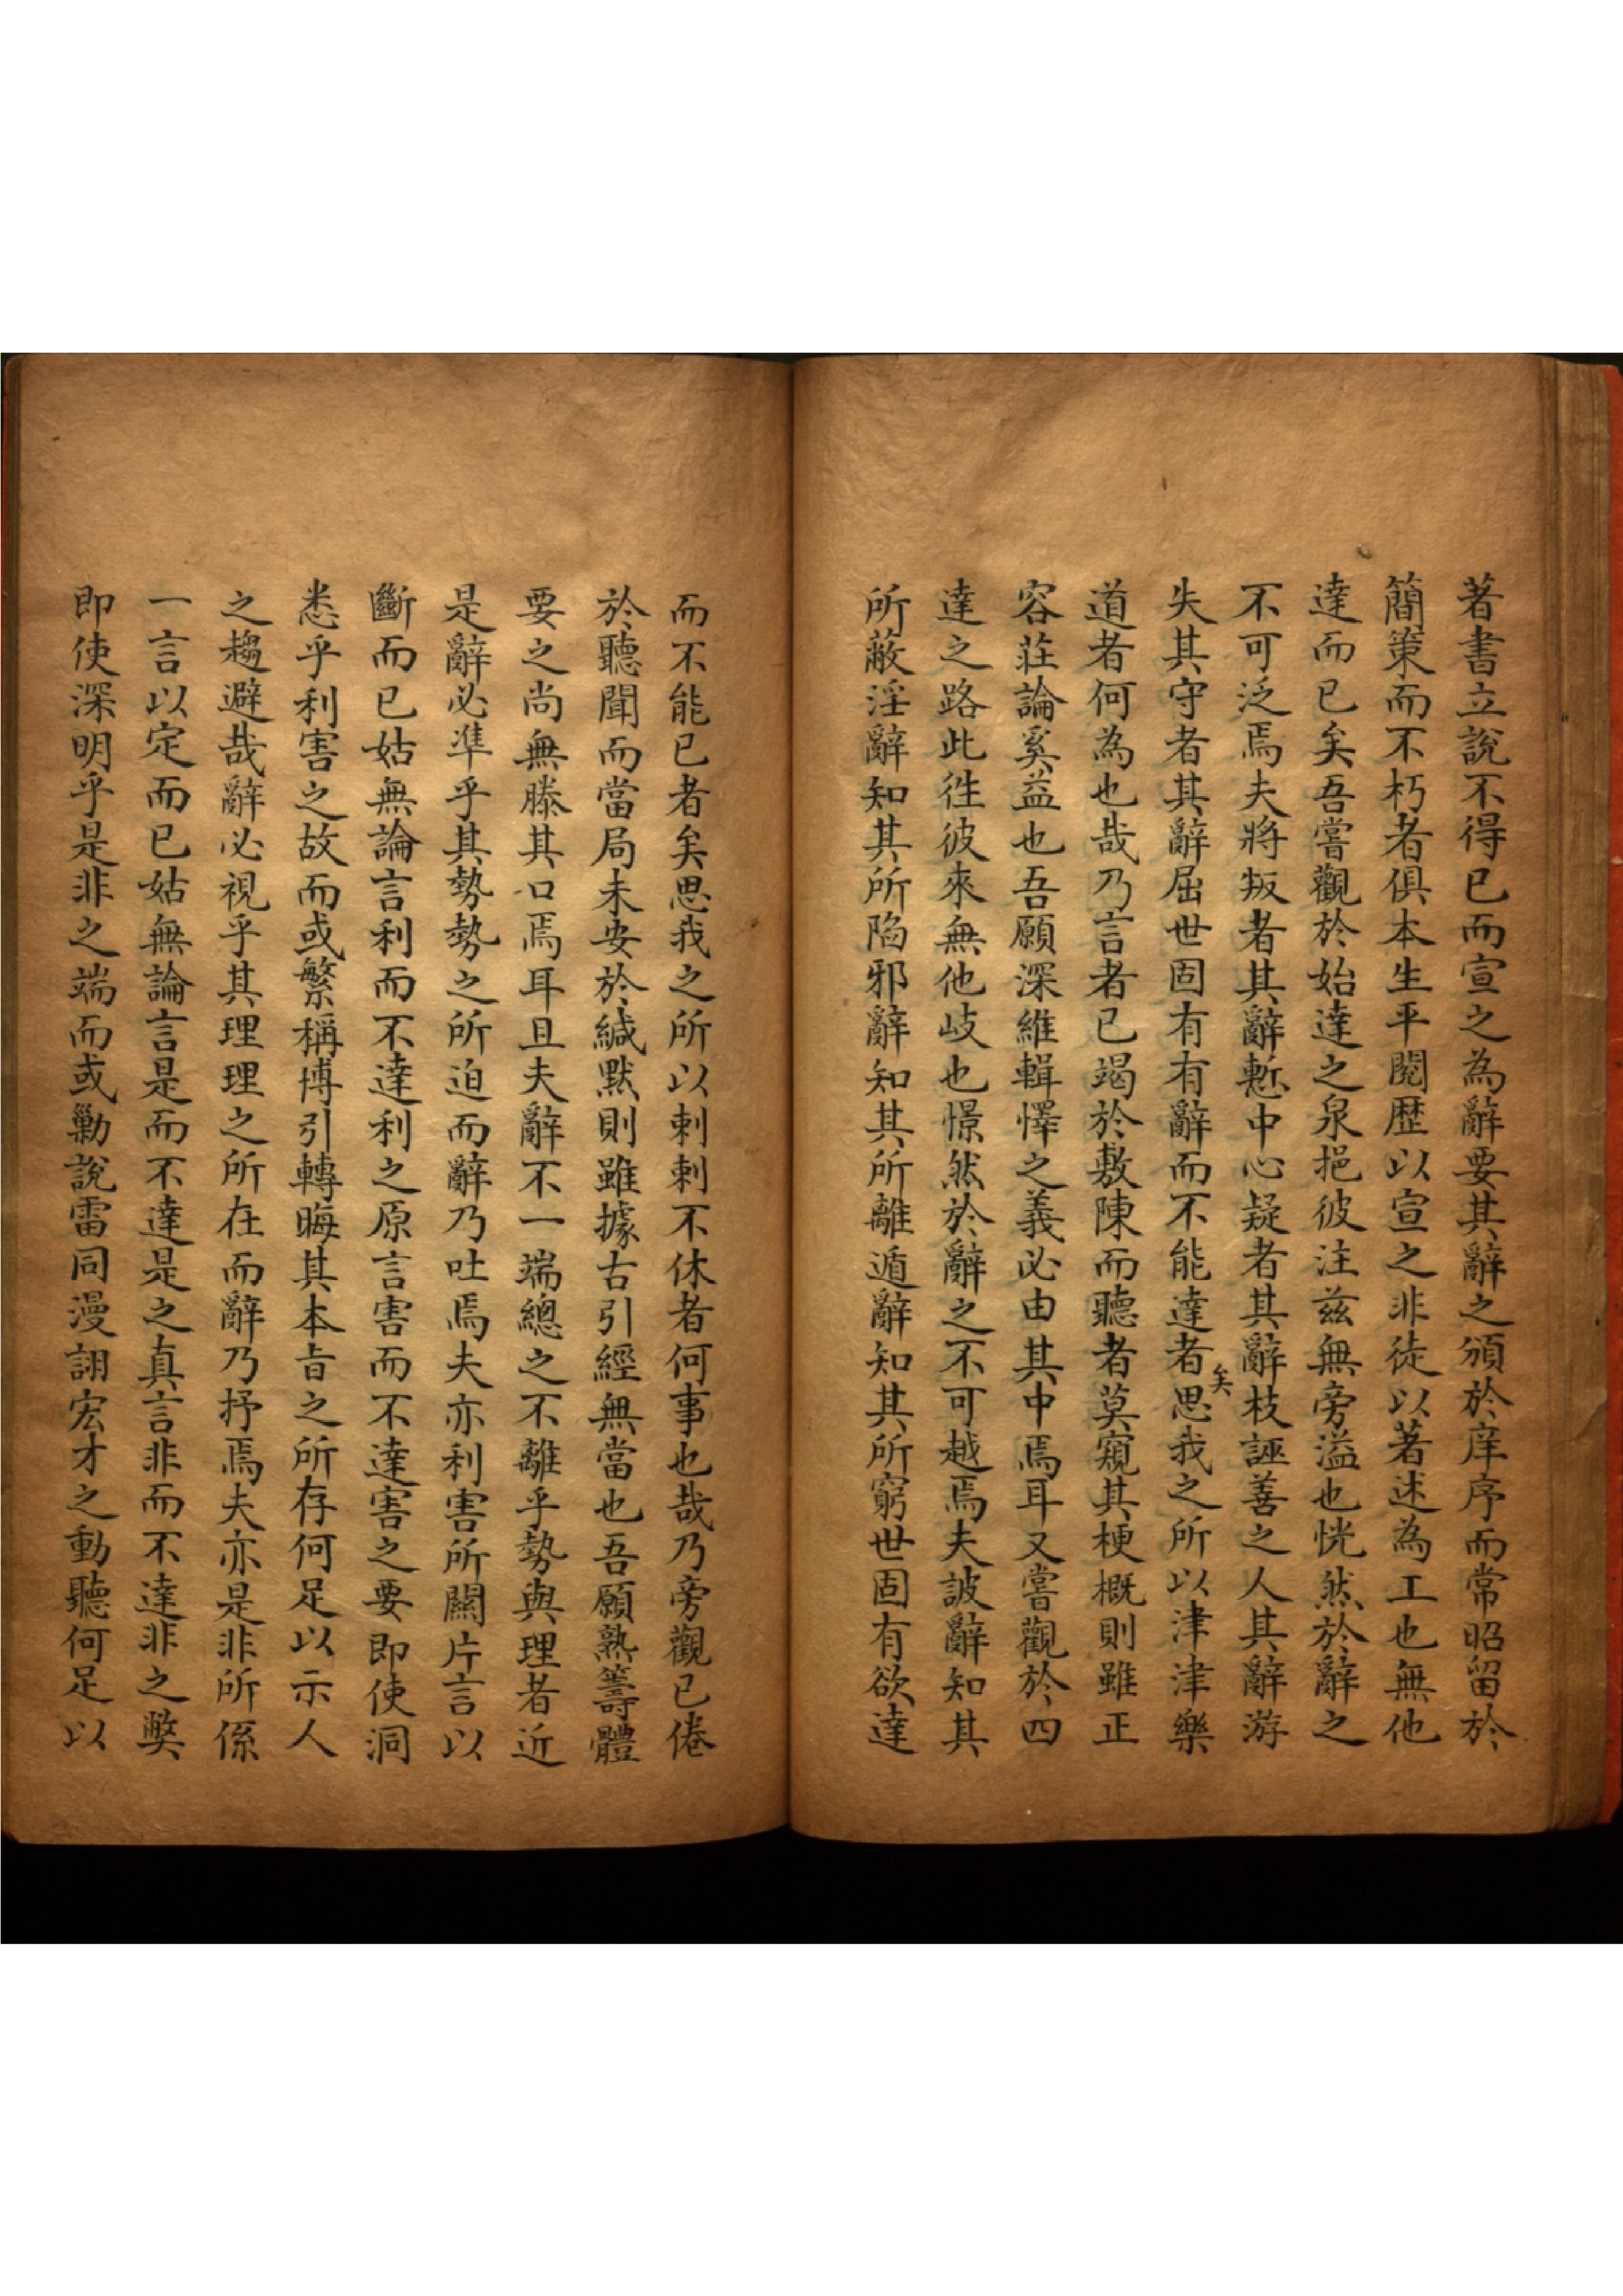 著書立說不得已而宣之為辭要其辭之頒於庠序而常昭留於
簡策而不朽者俱本生平閱歷以宣之非徒以著述為工也無他
達而已矣吾嘗觀於始達之泉挹彼注茲無旁溢也恍然於辭之
不可泛焉夫將叛者其辭慙中心疑者其辭枝誣善之人其辭游
失其守者其辭屈世固有有辭而不能達者矣思我之所以津津樂
道者何為也哉乃言者已竭於敷陳而聽者莫窺其梗概則雖正
容莊論奚益也吾願深維輯懌之義必由其中焉耳又嘗觀於四
達之路此徃彼來無他岐也憬然於辭之不可越焉夫詖辭知其
所蔽淫辭知其所陷邪辭知其所離遁辭知其所窮世固有欲達
而不能已者矣思我之所以刺刺不休者何事也哉乃旁觀已倦
於聽聞而當局未安於緘默則雖據古引經無當也吾願熟籌體
要之尚無滕其口焉耳且夫辭不一端總之不離乎勢與理者近
是辭必準乎其勢勢之所迫而辭乃吐焉夫亦利害所關片言以
斷而已姑無論言利而不達利之原言害而不達害之要即使洞
悉乎利害之故而或繁稱博引轉晦其本旨之所存何足以示人
之趨避哉辭必視乎其理理之所在而辭乃抒焉夫亦是非所係
一言以定而已姑無論言是而不達是之真言非而不達非之獘
即使深明乎是非之端而或勦說雷同漫詡宏才之動聽何足以